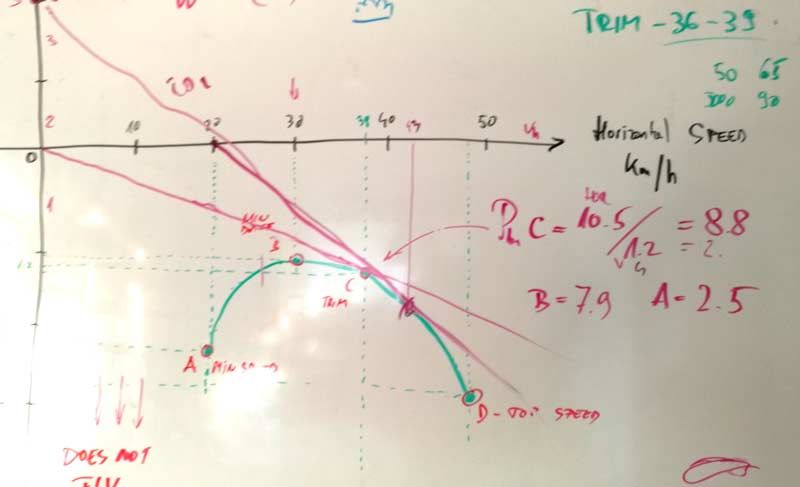 TRIM - 36 - 39
50 65
90
3
2
0
10
20
30
38
40
43
50
Vh
Horizontal SPEED
Km/h
1
MIN
B
C
TRIM
A
MIN
D - TOP SPEED
C = 10.5 / 1.2 = 8.8
= 2.
B = 7.9 A = 2.5
DOES NOT
FLY